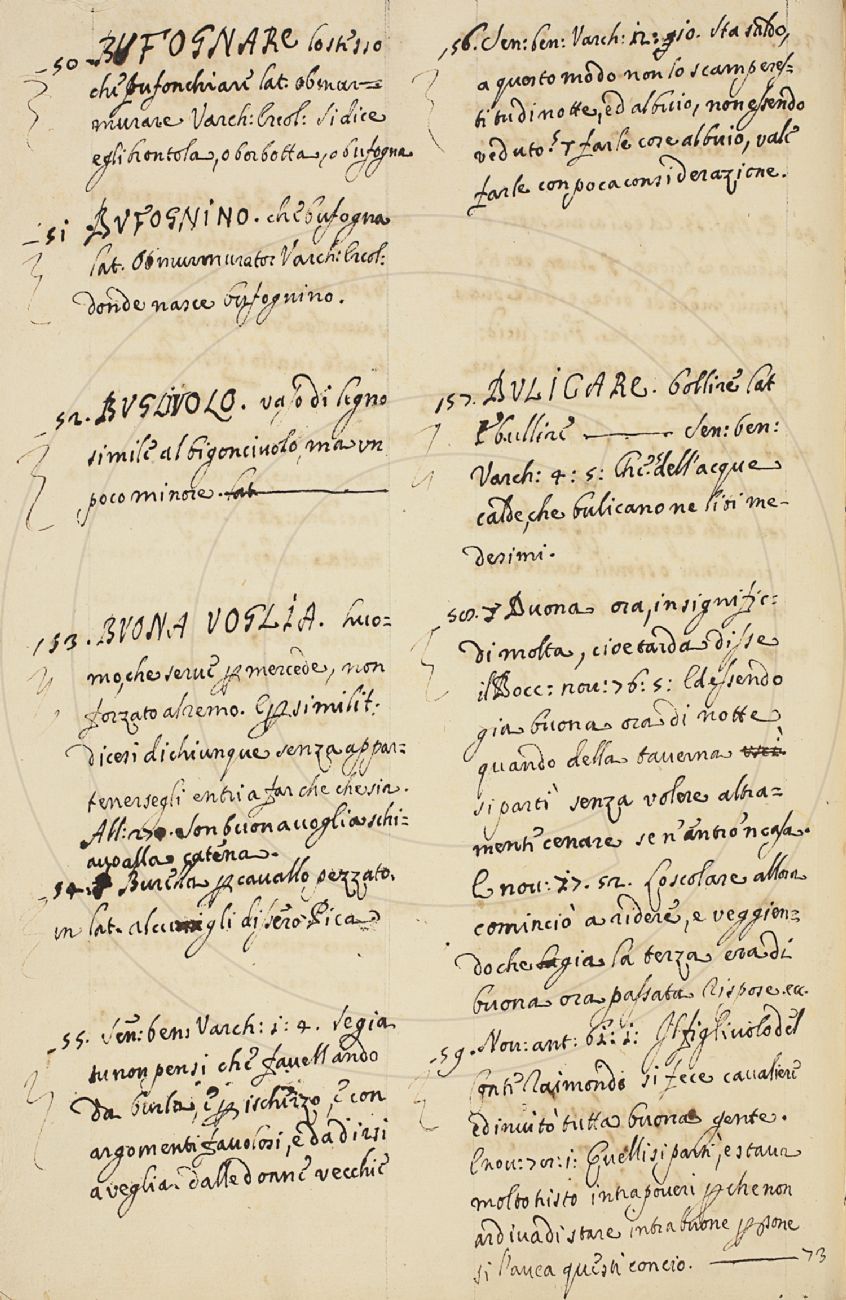 50. BUFOGNARE lo stesso
che bufonchiare lat. obmur=
murare Varch: Ercol: si dice
egli brontola, o borbotta, o bufogna
51 BVFOGNINO. che bufogna
lat. Obmurmurator Varch: Ercol:
donde nasce bufognino.
52. BVGLIVOLO. vaso di legno
simile al bigonciuolo, ma vn
poco minore. lat
153. BVONA VOGLIA. huo=
mo, che serue ꝑ mercede, non
forzato al remo. E ꝑ similit:
dicesi di chiunque senza appar=
tenersegli entri a far che che sia.
All: 270. Son buonauoglia schi=
auo alla catena.
54. Burella ꝑ cavallo pezzato.
in lat. alcuni gli dissero Pica
55. Sen: ben: Varch: 1: 4. Se gia
tu non pensi che fauellando
da burla, e ꝑ ischerzo, e con
argomenti fauolosi, e da dirsi
a veglia dalle donne vecchie
156. Sen: ben: Varch: 12: 10. Sta saldo,
a questo modo non lo scamperes=
ti tu di notte, ed al buio, non essendo
veduto? farle cose al buio, vale
farle con poca considerazione.
157. BVLICARE. bollire lat
Ebullire Sen: ben:
Varch: 4: 5: Che? dell'acque
calde, che bulicano ne liti me-
desimi.
58. Buona ora, in signific:
di molta, cioe tarda disse
il Bocc: nou: 76: 5: Ed essendo
gia buona ora di notte
quando della tauerna vsci
si partì senza volere altra=
menti cenare se n'entrò 'n casa.
E nou: 77. 52. Lo scolare allora
cominciò a ridere, e veggien=
do che la gia la terza era di
buona ora passata rispose ec.
59. Nou: ant: 62: 1: Il figliuolo del
Conte Raimondo si fece caualiere
ed inuitò tutta buona gente.
E nou: 70: 1: Quelli si partì, e staua
molto tristo intra poueri ꝑche non
ardiua di stare intra buone ꝑsone
si l'auea questi concio. 73